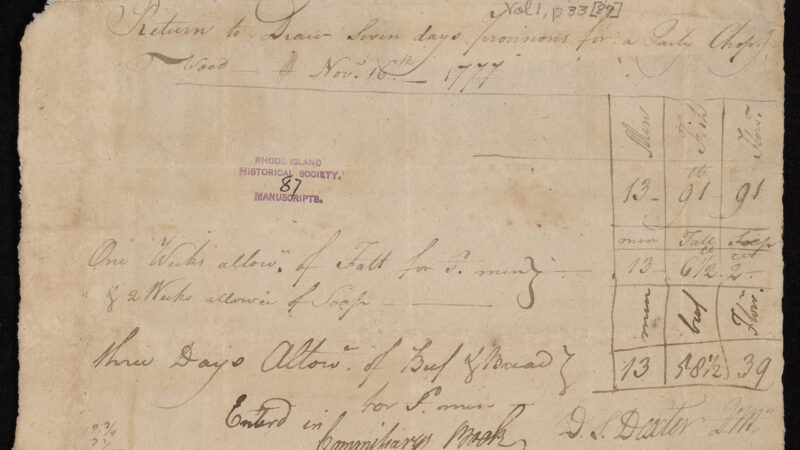 Vol 1, p 33 [87]
Return to Draw Seven days provisions for a Party Chop.g
Wood — Nov.r 16th — 1777
Men Fish Flow.r
13 lb 91 91
RHODE ISLAND
HISTORICAL SOCIETY.
87
MANUSCRIPTS.
men Salt Soap
One Weeks allow.n of Salt for S.d men } 13 6 1/2 2
& 2 Weeks allowce of Soap
men beef Flow.r
three Days Allow.n of Beef & Bread } 13 58 1/2 39
for S.d men
Enterd in
Commissarys Book D. S. Dexter